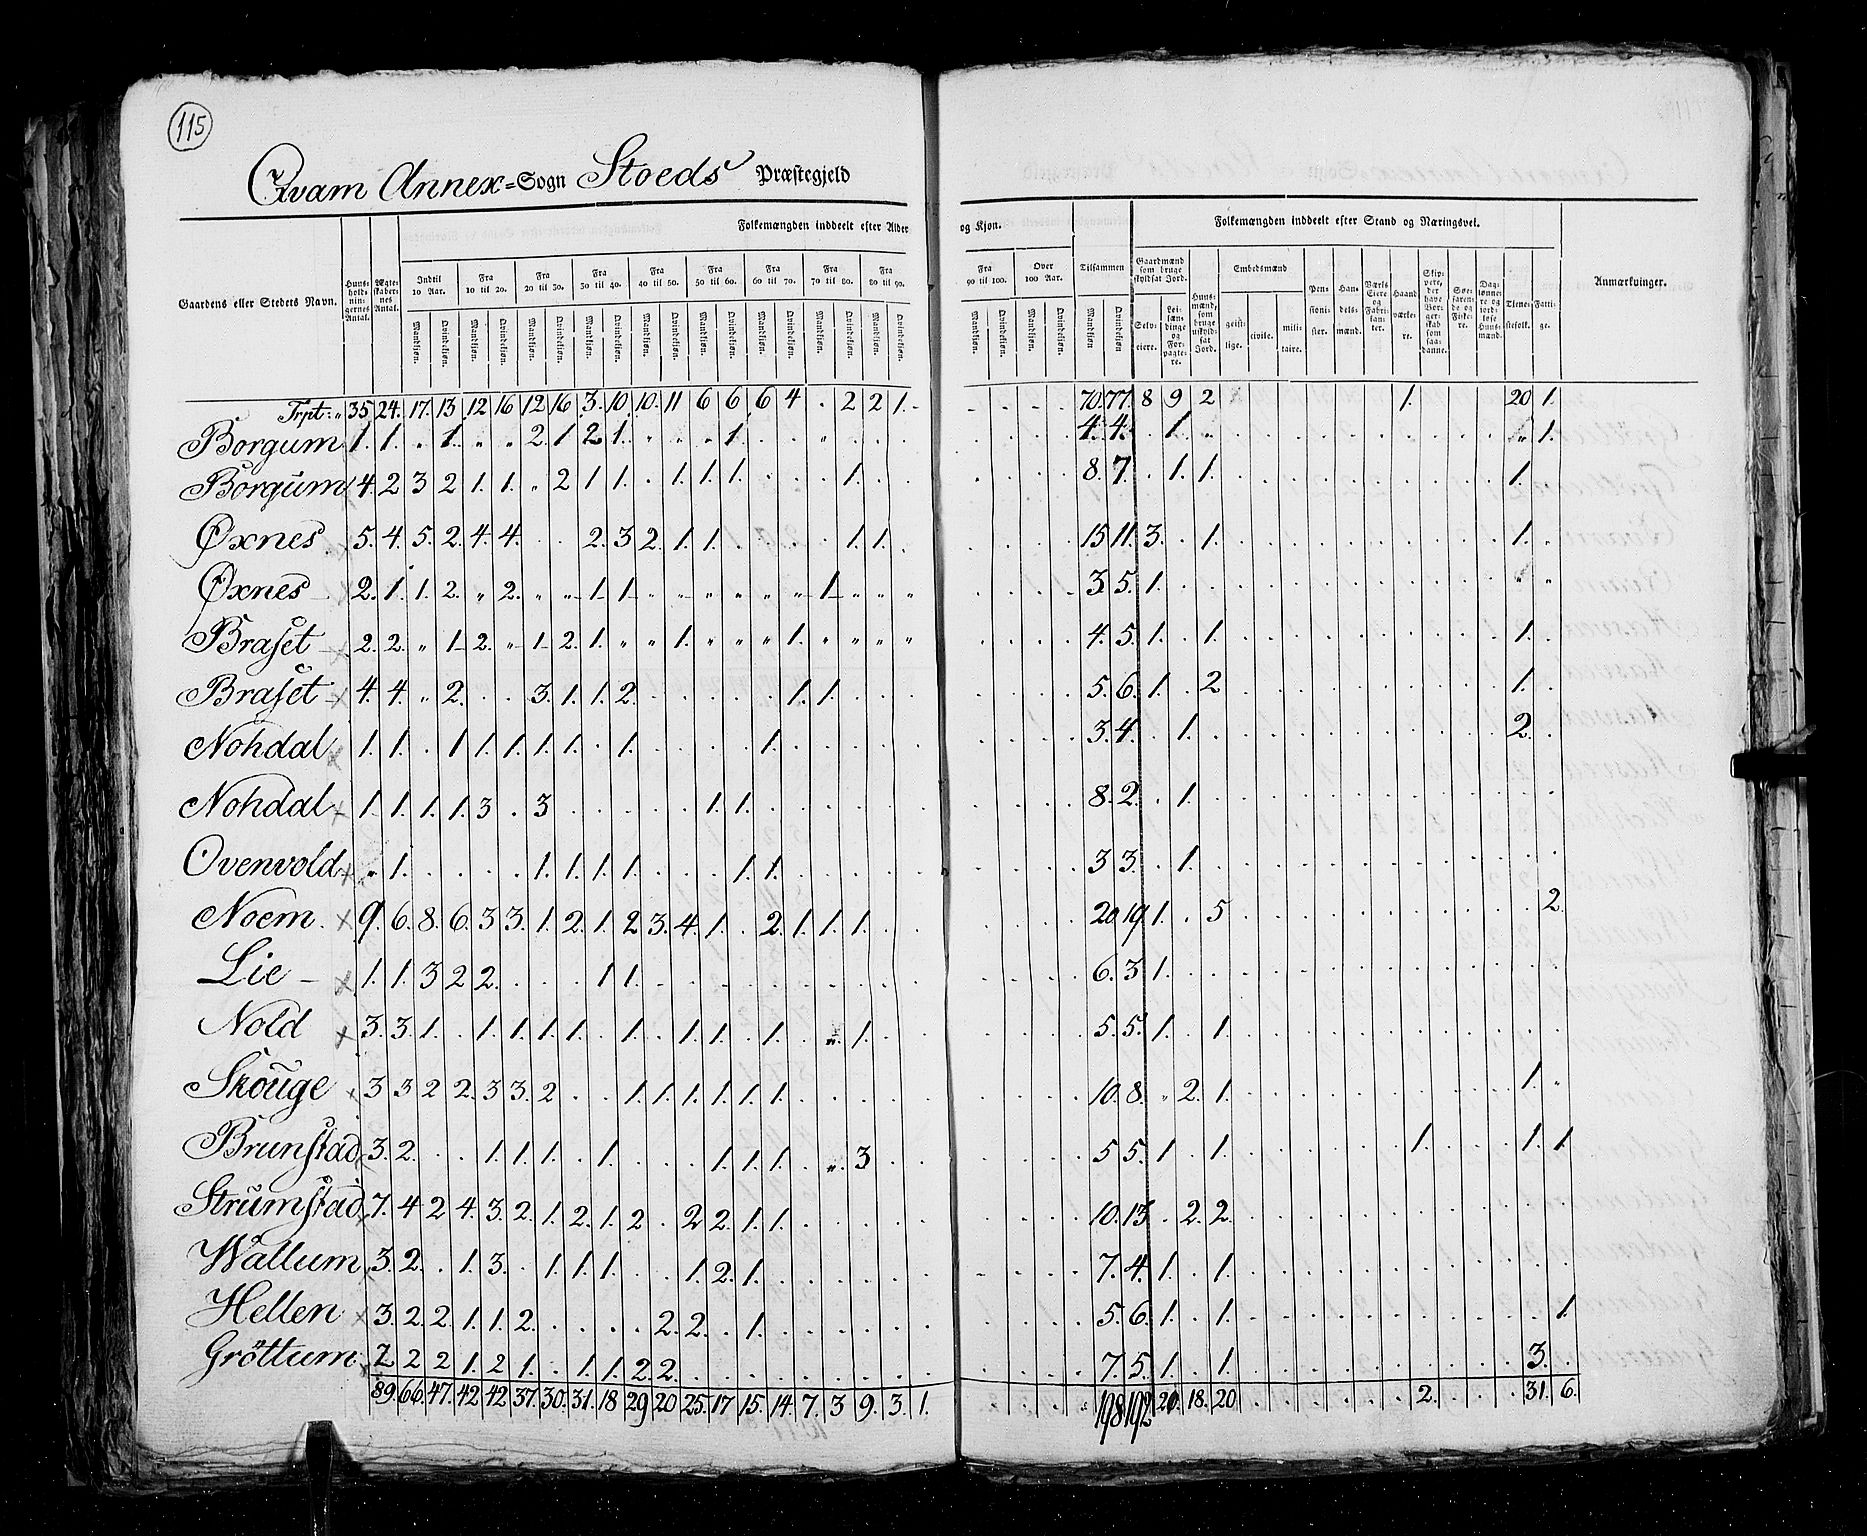 115
Qvam Annex=Sogn Stoeds Præstegjeld
Folkemængden inddeelt efter Alder og Kjøn. Folkemængden inddeelt efter Stand og Næringsvei.
Gaardens eller Stedets Navn. Huus-holdningernes Antal. Ægteskabernes Antal. Indtil 10 Aar. Fra 10 til 20. Fra 20 til 30. Fra 30 til 40. Fra 40 til 50. Fra 50 til 60. Fra 60 til 70. Fra 70 til 80. Fra 80 til 90. Fra 90 til 100. Over 100 Aar. Tilsammen Gaardmænd som bruge skyldsat Jord. Huusmænd, som bruge uskyldsat Jord. Embedsmænd Pensionister. Handelsmænd. Haandværkere. Tjenestefolk. Fattige. Anmærkninger.
Mandkiøn. Qvindekiøn. Selveiere. geistlige. civile. militaire.
Trpt: 35 24. 17. 13 12 16 12 16 3. 10. 10. 11 6 6 6 4 . 2 2 1. 70. 77. 8 9 2 1. 20 1.
Borgum 1. 1. " 1. " " 2. 1 2 1. " " " 1. 4. 4. . 1. " 1.
Borgum 4. 2 3 2 1. 1. " 2 1 1. . 1. 1. 1. 1. 8. 7. . 1. 1. 1.
Øxnes 5. 4. 5. 2. 4. 4. . . 2. 3 2. 1. 1. 1. 1. 15 11. 3. . 1. 1. .
Øxnes 2. 1. 1. 2. " 2. " " 1 1. " " " " " " 1. " " " 3. 5. 1. " "
Braset 2. 2. " 1 2. " 1 2. 1. " " 1. " " " 1. " " " " 4. 5. 1. . 1. 1. .
Braset 4. 4. " 2. . . 3. 1. 1. 2. 1. 1. 5. 6. 1. . 2 1. .
Nohdal 1. 1. . 1 1. 1. 1. 1. . 1. 1. 3. 4. . 1. 2. .
Nohdal 1. 1. 1. 1. 3 . 3 1. 1. 8. 2. . 1.
Ovenvold " 1. 1. 1. 1. 1. 1. 1. 3 3. . 1.
Noem. 9. 6. 8. 6. 3 3. 1. 2. 1. 2 3. 4. 1. . 2. 1. 1. 1. 20 19. 1. . 5 2.
Lie 1. 1. 3 2 2. 1 1. 6. 3 1.
Nold 3. 3. 1. . 1. 1. 1. 1. . 1. . 1. 1. . 1. . " 1. 5. 5. 1. . 1.
Skouge 3 3 2 2. 3 3. 2 . . 1. 1. 1. 1. 1. 1. 10. 8. " 2. 1. 1. "
Brunstad 3. 2. . . 1. 1. 1. . 1. 1. 1. 1. . " 3 5 5. 1. . 1. 1. 1. 1
Strumstad 7. 4 2 4. 3. 2. 1. 2. 1. 2 . 2 2. 1. 1. 10. 13 . 2. 2.
Wallum 3. 2. . 1. 3. . 1. 1. 1. . . 1. 2. 1. 7. 4. 1. . 1.
Hellen 3. 2. 2. 1. 1. 2. 2. 2. . 1. 5. 6. 1. . 1. 1
Gröttum 2 2 2 1. 2 1. . 1. 1. 2. 2. 7. 5. 1. . 1. 3. .
89. 66. 47. 42 42 37. 30. 31. 18 29 20 25. 17 15. 14. 7. 3 9. 3. 1. 198 192 20. 18. 20 2. 31. 6.